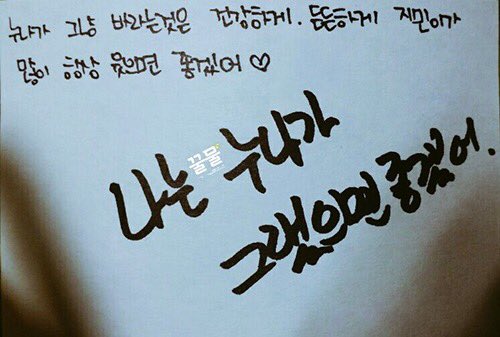 누나가 그냥 바라는것은 건강하게. 튼튼하게 지민이가
많이 항상 웃으면 좋겠어♡
꿀물
나는 누나가
그랬으면 좋겠어.